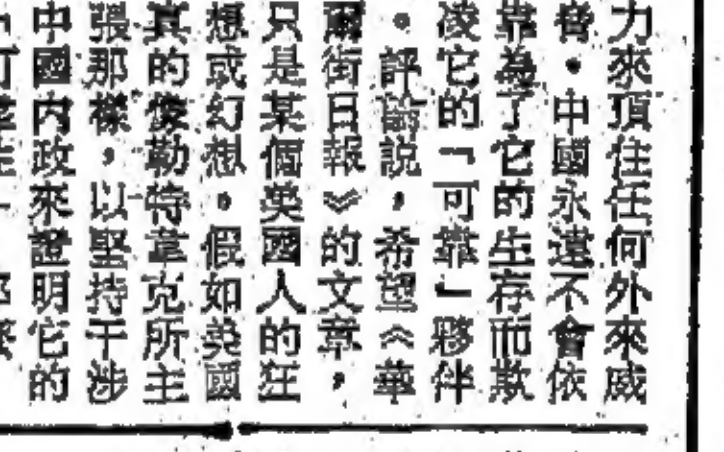 力來頂住任何外來威
脅。中國永遠不會依
靠為了它的生存而欺
凌它的「可靠」夥伴
。評論説，希望《華
爾街日報》的文章，
只是某個英國人的狂
想或幻想。假如英國
真的像勒特韋克所主
張那樣，以堅持干涉
中國内政來證明它的